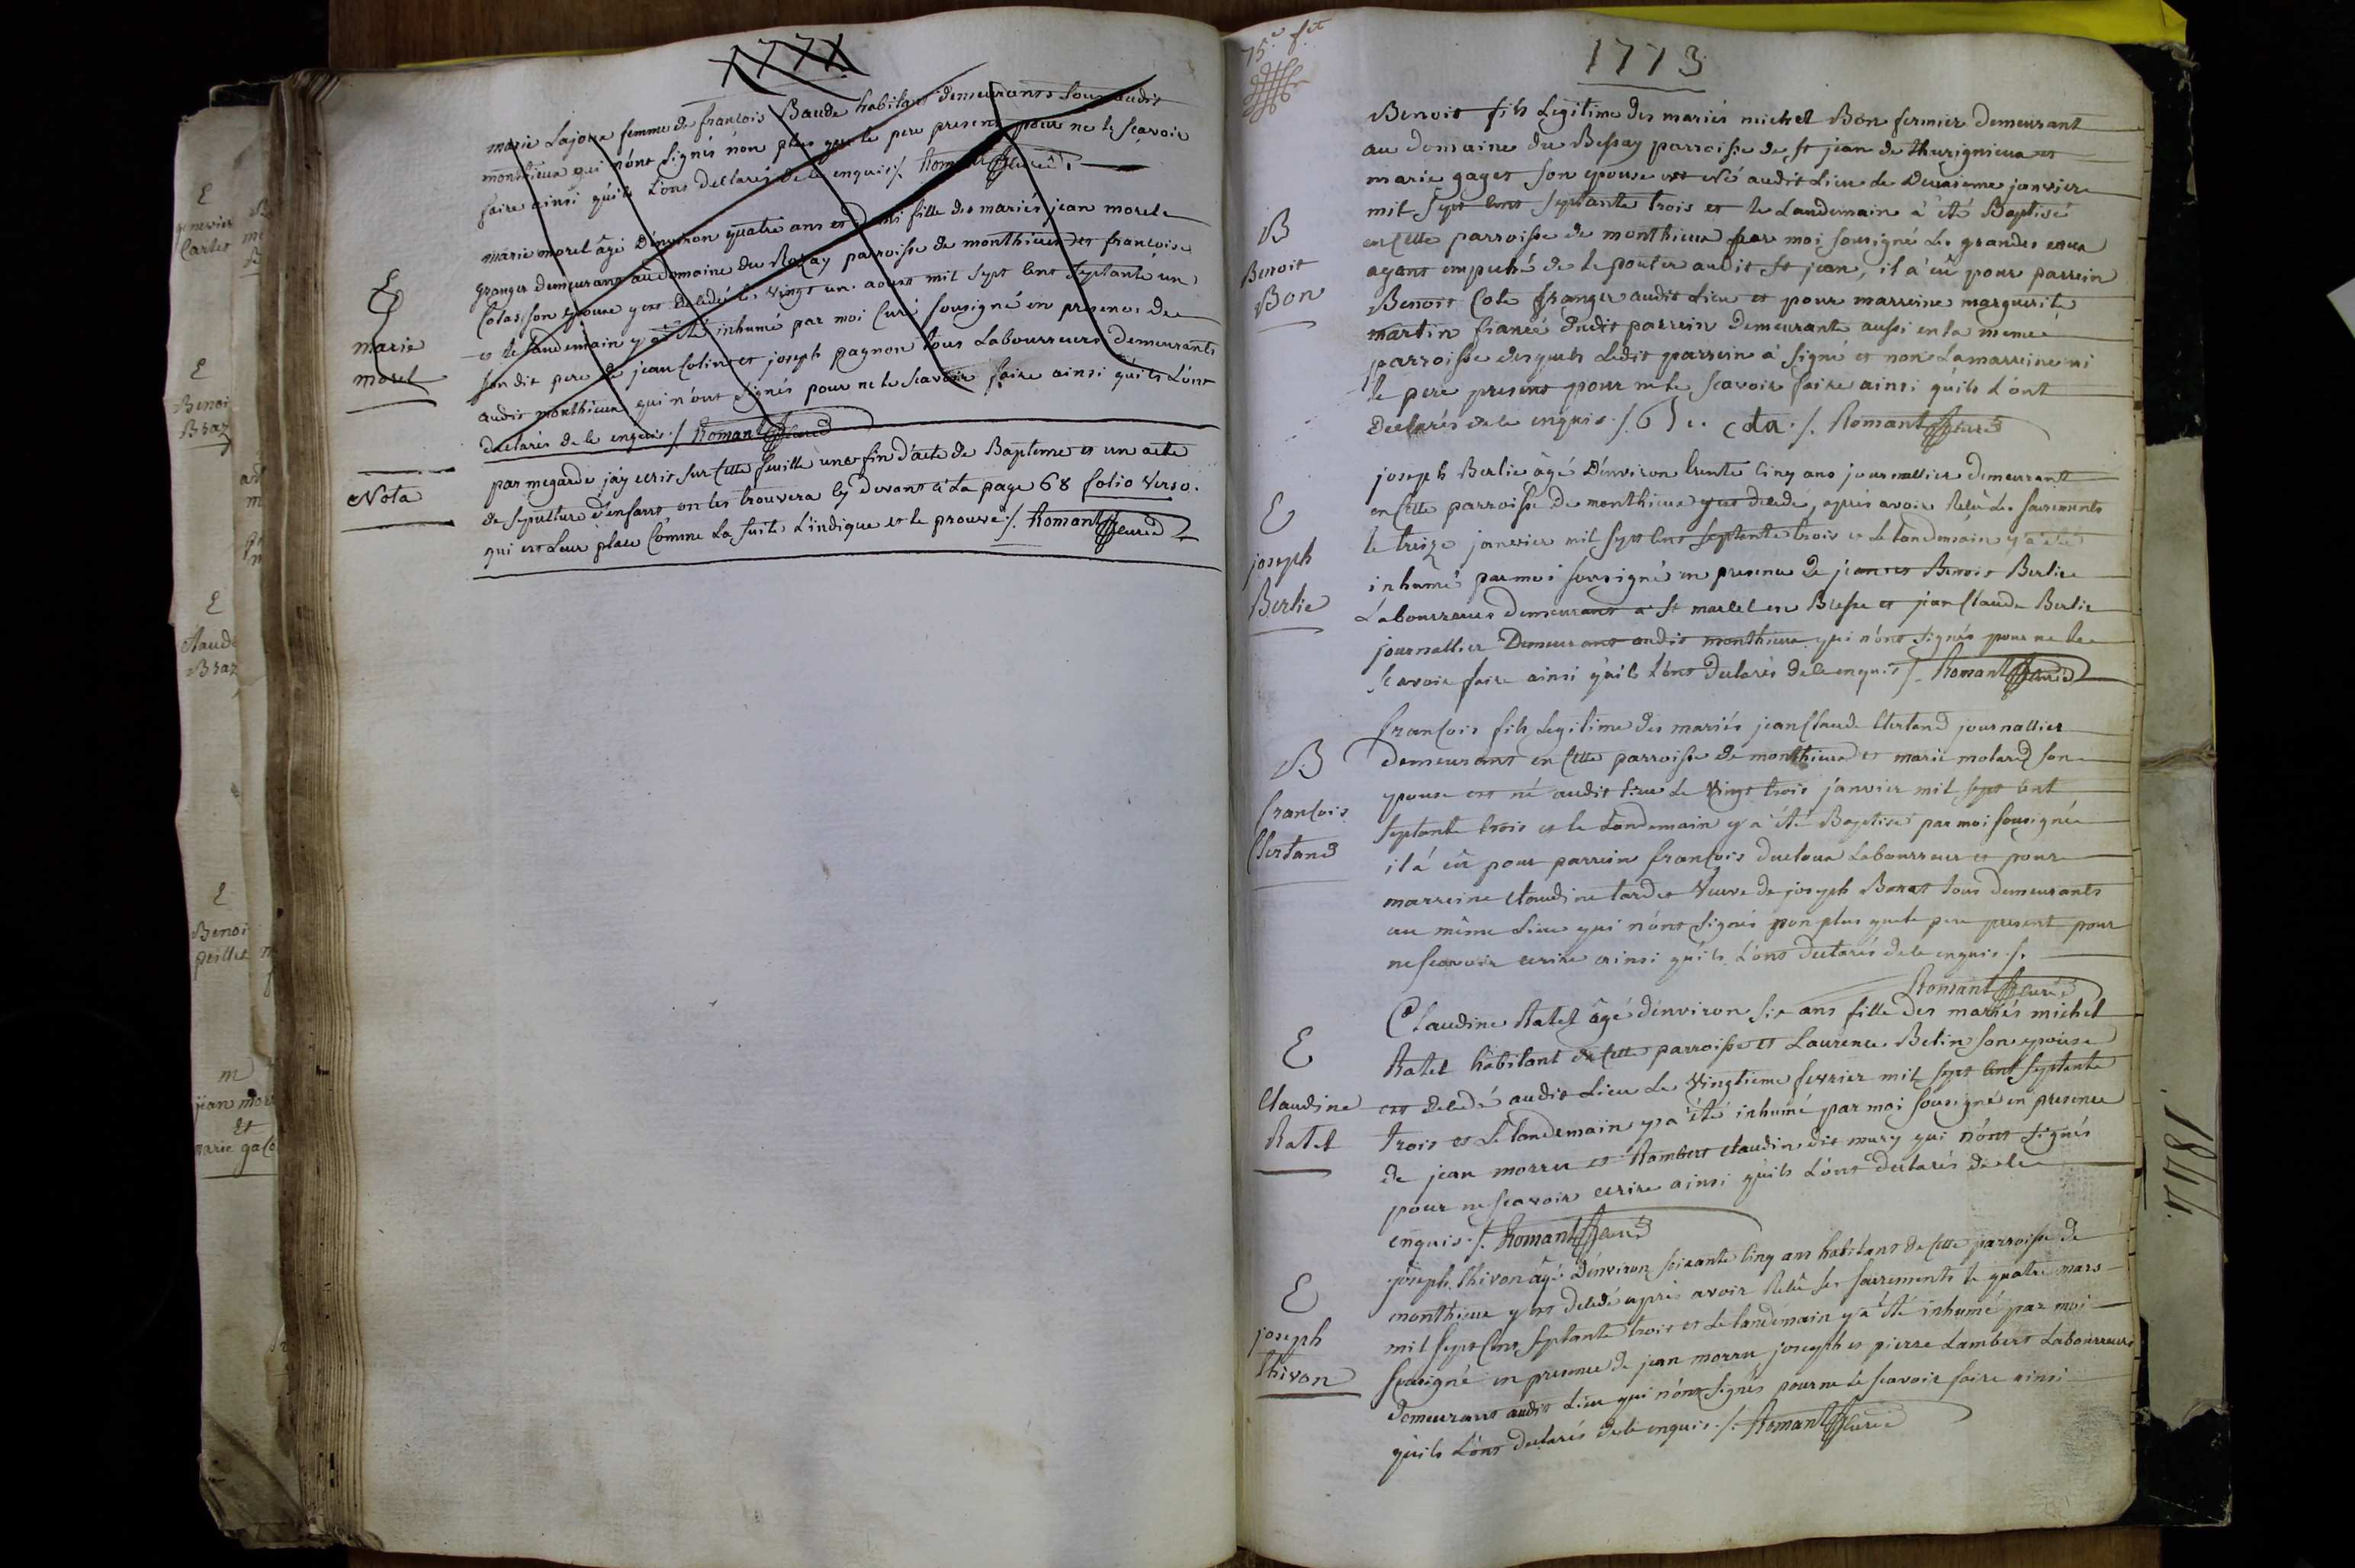 1771
marie Lajoue femme de francois Baude habitant demeurants tous audit
monthieux qui n'ont signés nón plus que le pere present pour ne le scavoir
faire ainsi qu'ils L'ont declarés de ce enquis ./. Romant curé
E
marie
morel
marie morel âgé D'environ quatre ans et demi fille des mariés jean morel
granger demeurant au domaine du Rozay parroisse de monthieux et francoise
Colas son epouse y est decedé le vingt un aoust mil sept cent septante un
et le landemain y a été inhumé par moi curé sousigné en presence de
son dit pere de jean Colin et joseph pagnon tous Labourreurs demeurants
audit monthieux qui n'ont signés pour ne le scavoir faire ainsi qu'ils L'ont
declarés de le enquis ./ Romant curé
Nota
par megarde j'ay ecris sur cette feuille une fin d'acte de Baptême et un acte
de sepulture d'enfant on les trouvera cy devant à La page 68 folio verso.
qui est Leur place Cómme La suite L'indique et le prouve ./. Romant curé
75e ft
1773
B
Benoit
Bon
Benoit fils Legitime des mariés michel Bon fermier demeurant
au domaine du Bessay parroisse de st jean de thurignieux et
marie gaget son epouse est Né audit Lieu le Deuxieme janvier
mil sept cent septante trois et le Landemain à été Baptisé
en cette parroisse de monthieux par moi sousigné Les grandes eaux
ayant empeché de le porter audit st jean, il a eû pour parrein
Benoit Cote granger audit Lieu et pour marreine marguerite
martin fiancée dudit parrein demeurante aussi en la meme
parroisse desquels Ledit parrein à signé et non La marreine ni
le pere present pour ne le scavoir faire ainsi qu'ils L'ont
declarés de le enquis ./. B cota ./. Romant curé
E
joseph
Berlie
joseph Berlie âgé D'environ trente cinq ans journallier demeurant
en cette parroisse de monthieux y est decedé, aprés avoir Recû Les sacrements
le treize janvier mil sept cent septante trois et Le landemain y a été
inhumé par moi sousigné en presence de jean et Benoit Berlie
Labourreurs demeurant à st marcel en Bresse et jean Claude Berlie
journallier Demeurant audit monthieux qui n'ont signés pour ne le
scavoir faire ainsi qu'ils L'ont declarés de le enquis ./. Romant curé
B
francois
Clertand
francois fils Legitime des mariés jean Claude Clertand journallier
demeurant en cette parroisse de monthieux et marie molard son
epouse est né audit Lieu Le vingt trois janvier mil sept cent
septante trois et le Landemain y a été Baptisé par moi sousigné
il à eû pour parrein francois ducloux Labourreur et pour
marreine claudine tardet veuve de joseph Borat tous demeurants
au même Lieu qui n'ont signés non plus que le pere present pour
ne scavoir ecrire ainsi qu'ils L'ont declarés de le enquis ./.
Romant curé
E
Claudine
Ratel
Claudine Ratel âgé d'environ six ans fille des mariés michel
Ratel habitant de cette parroisse et Laurence Belin son epouse
est decedé audit Lieu Le vingtieme fevrier mil sept cent septante
trois et Le landemain y a été inhumé par moi sousigné en presence
de jean morru et Rambert claudin dit mury qui n'ont signés
pour ne scavoir ecrire ainsi qu'ils L'ont declarés de le
enquis ./. Romant curé
E
joseph
thivon
joseph thivon âgé d'environ soixante cinq ans habitant de cette parroisse de
monthieux y est decedé aprés avoir Recû les sacrements le quatre mars
mil sept cent septante trois et Le landemain y a été inhumé par moi
sousigné en presence de jean morru joseph et pierre Lambert Labourreurs
demeurant audit Lieu qui n'ont signés pour ne le scavoir faire ainsi
qu'ils L'ont declarés de le enquis ./. Romant curé
E
genevieve
E
Benoi
Braz
E
Claude
Braz
E
Benoi
peillet
m
jean mor
Et
marie gaco
1844